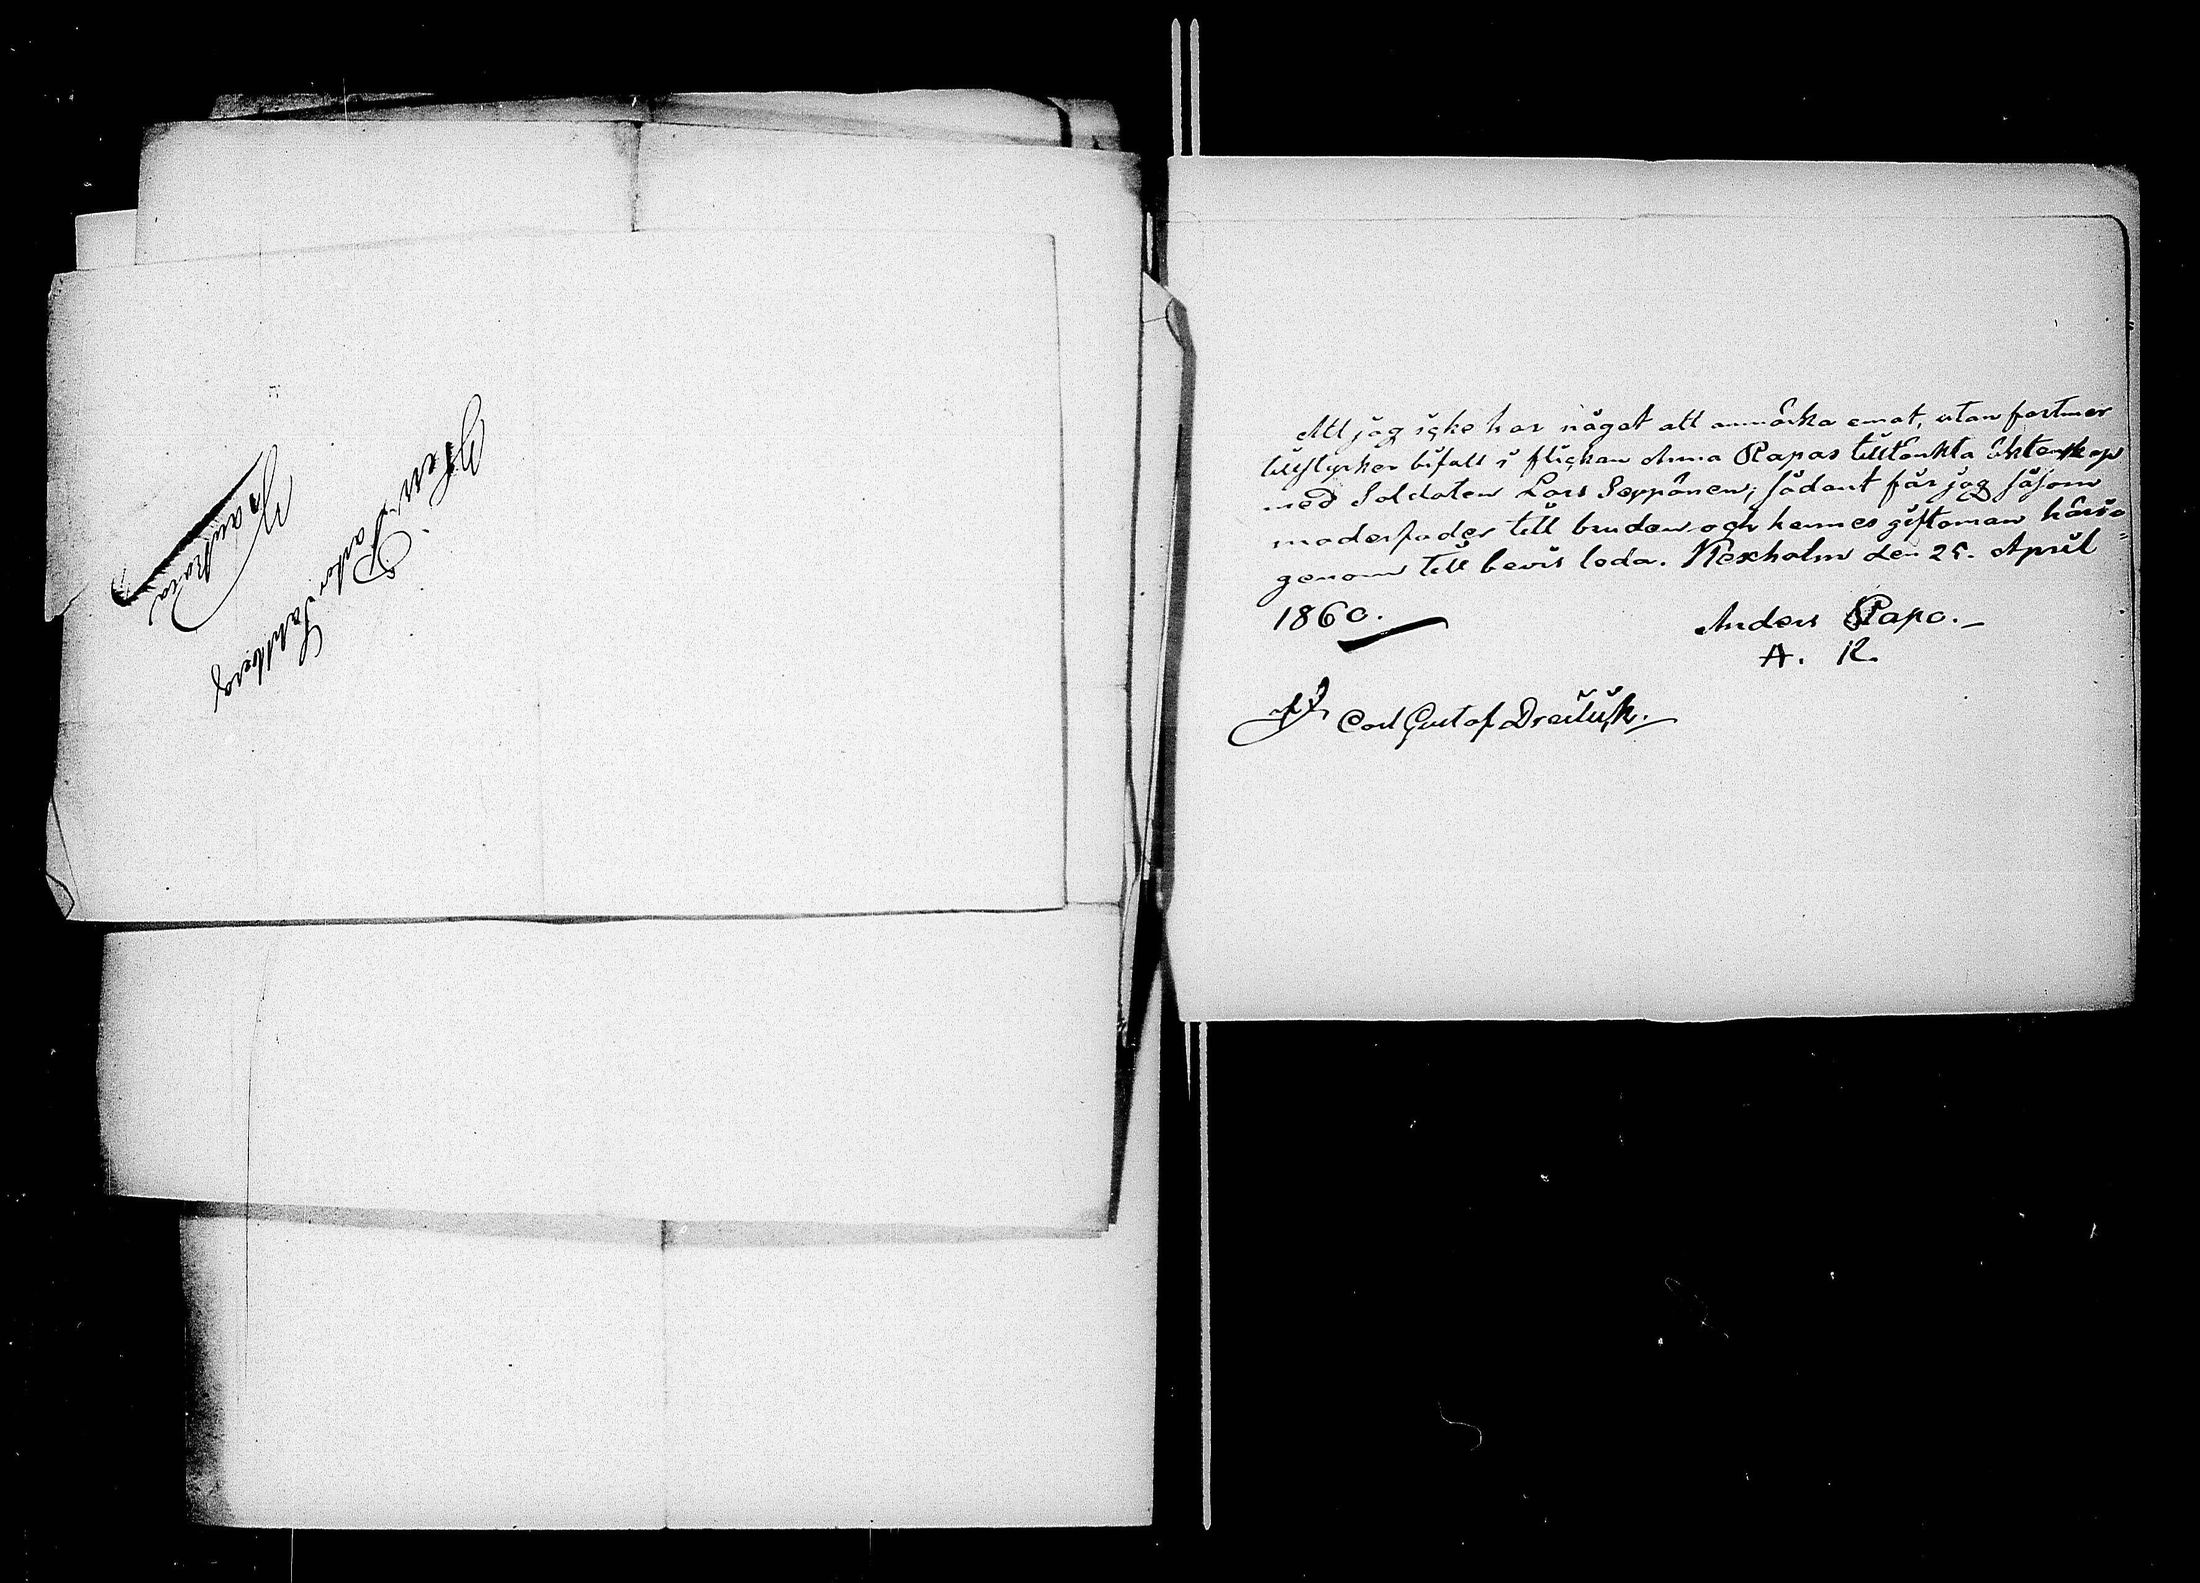 Herr Pastor Sahlberg
Rautus
Att jag icke har något att anmärka emot, utan fastmer
tillstyrker bifall i flickan Anna Rapos tilltänkta äktenskap
med Soldaten Lars Seppönen; sådant får jag såsom
moderfader till bruden och hennes giftoman härige=
genom till bevis leda. Kexholm den 25. April
1860.
Anders Rapo._
A. R.
Carl Gustaf